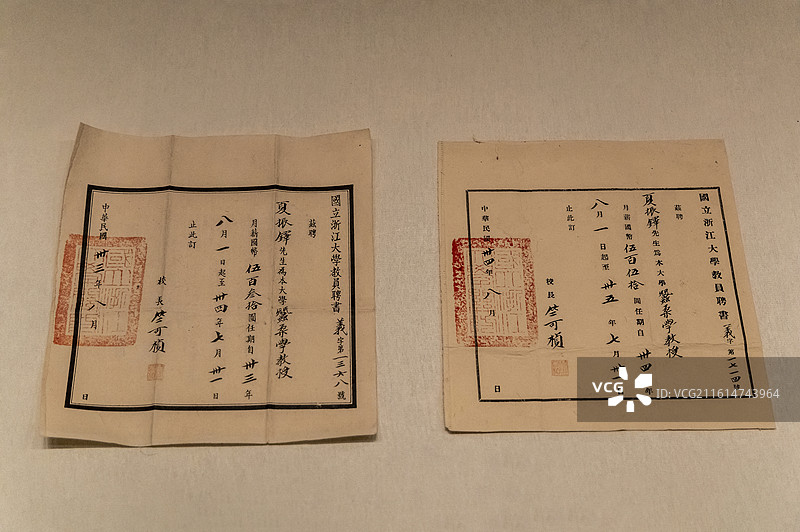 國立浙江大學教員聘書 義字第一三六八號
茲聘
夏振鐸先生為本大學蠶桑學教授
月薪國幣伍百叁拾圓任期自卅三年
八月一日起至卅四年七月卅一日
止此訂
校長竺可楨
中華民國卅三年八月 日
國立浙江大學教員聘書 義字第一七一四號
茲聘
夏振鐸先生為本大學蠶桑學教授
月薪國幣伍百伍拾圓任期自卅四年
八月一日起至卅五年七月卅
止此訂
校長竺可楨
中華民國卅四年八月 日
VCG
VCG.COM
ID:VCG211614743964